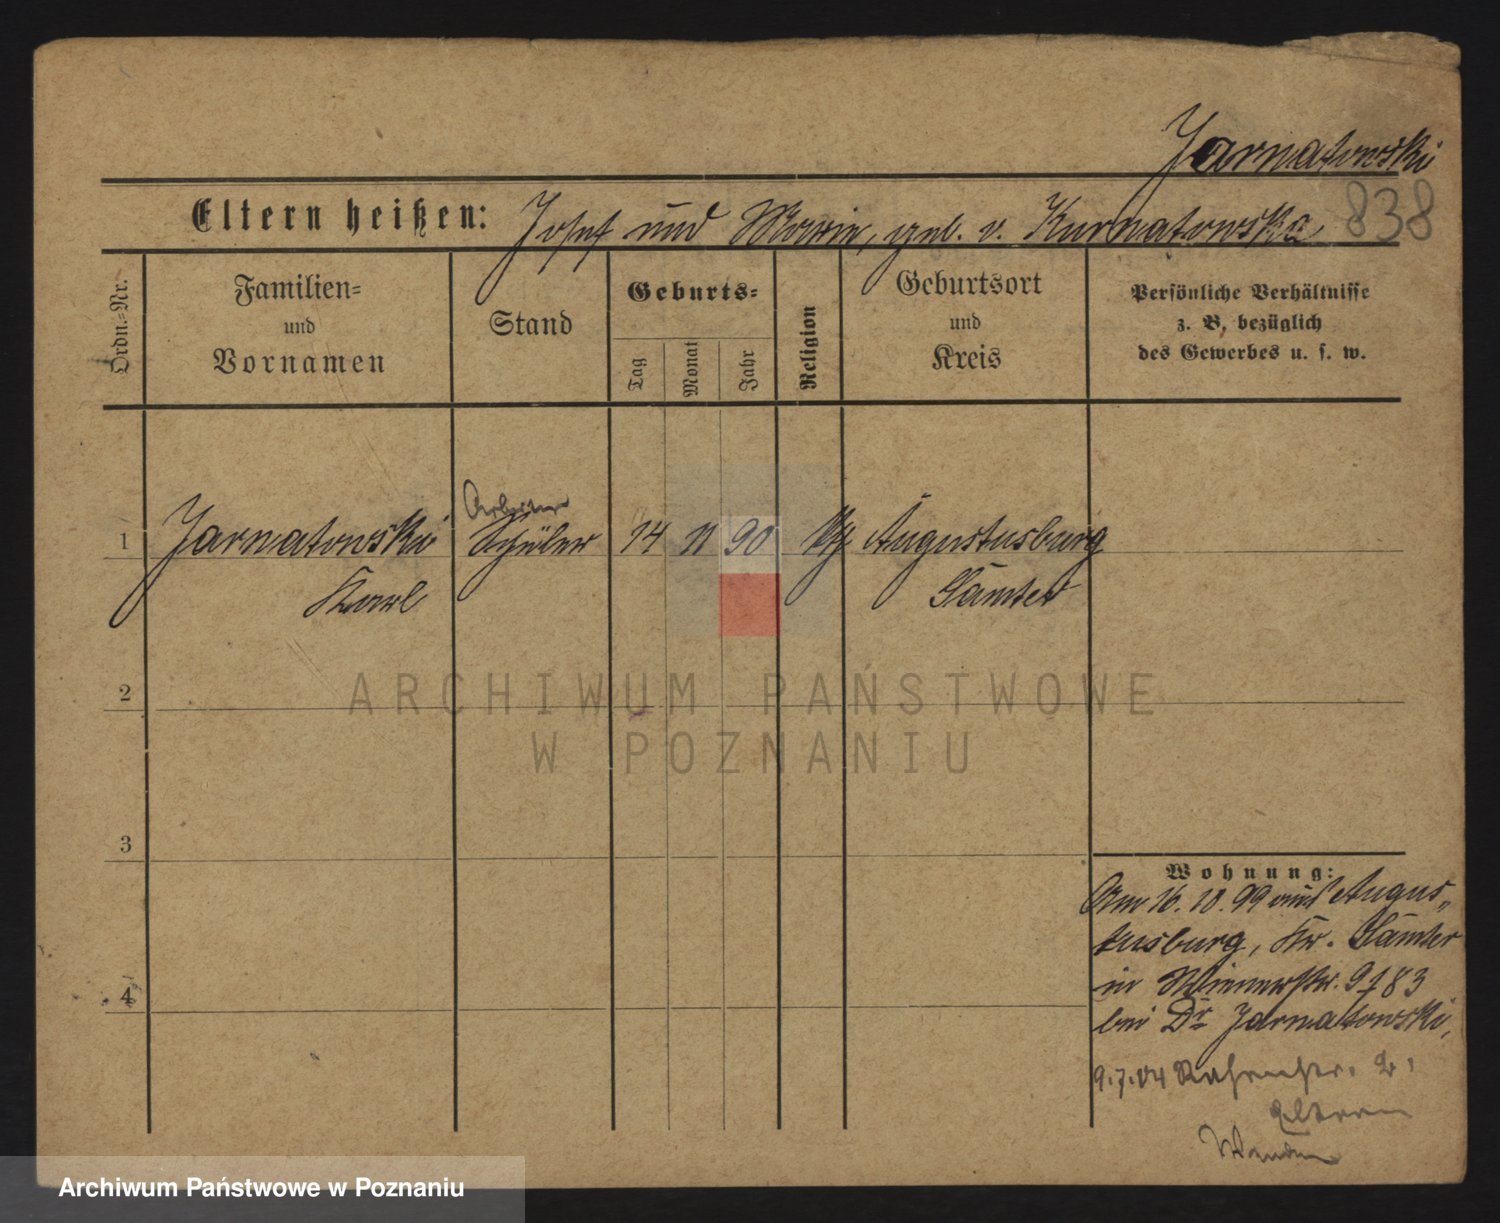 Jarnatowski
838
Eltern heißen: Josef und Marie, geb. v. Kurnatowska
Ordn.-Nr.
Familien-
und
Vornamen
Stand
Geburts-
Tag
Monat
Jahr
Religion
Geburtsort
und
Kreis
Persönliche Verhältnisse
z. B. bezüglich
des Gewerbes u. s. w.
Arbeiter
1 Jarnatowski Schüler 14 11 90 Augustusburg
Karl Samter
2
ARCHIWUM PAŃSTWOWE
W POZNANIU
3
Wohnung:
Am 16. 10. 99 aus Augus„
tusburg, Kr. Samter
in Wienerstr.
bei Dr Jarnatowski,
4
9.7.04
Eltern
Archiwum Państwowe w Poznaniu